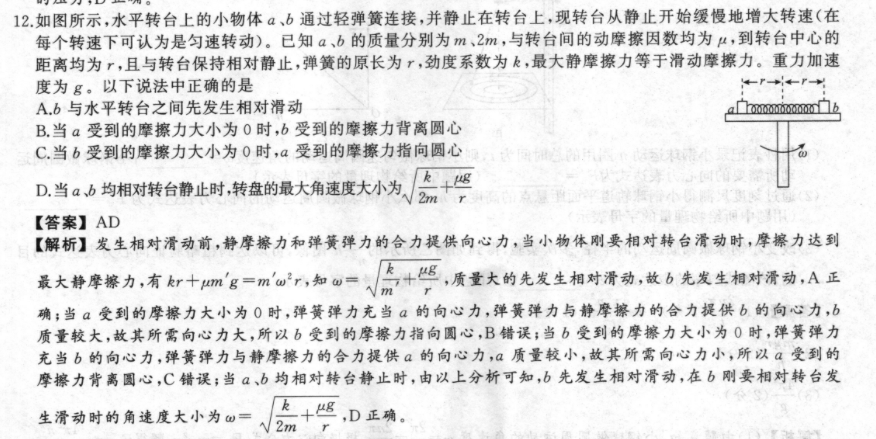 12.如图所示,水平转台上的小物体a、b通过轻弹簧连接,并静止在转台上,现转台从静止开始缓慢地增大转速(在
每个转速下可认为是匀速转动)。已知a、b的质量分别为m、2m,与转台间的动摩擦因数均为μ,到转台中心的
距离均为r,且与转台保持相对静止,弹簧的原长为r,劲度系数为k,最大静摩擦力等于滑动摩擦力。重力加速
度为g。以下说法中正确的是
r r
a b
ω
A.b与水平转台之间先发生相对滑动
B.当a受到的摩擦力大小为0时,b受到的摩擦力背离圆心
C.当b受到的摩擦力大小为0时,a受到的摩擦力指向圆心
D.当a、b均相对转台静止时,转盘的最大角速度大小为√(k/2m+μg/r)
【答案】AD
【解析】发生相对滑动前,静摩擦力和弹簧弹力的合力提供向心力,当小物体刚要相对转台滑动时,摩擦力达到
最大静摩擦力,有kr+μm′g=m′ω²r,知ω=√(k/m′+μg/r),质量大的先发生相对滑动,故b先发生相对滑动,A正
确;当a受到的摩擦力大小为0时,弹簧弹力充当a的向心力,弹簧弹力与静摩擦力的合力提供b的向心力,b
质量较大,故其所需向心力大,所以b受到的摩擦力指向圆心,B错误;当b受到的摩擦力大小为0时,弹簧弹力
充当b的向心力,弹簧弹力与静摩擦力的合力提供a的向心力,a质量较小,故其所需向心力小,所以a受到的
摩擦力背离圆心,C错误;当a、b均相对转台静止时,由以上分析可知,b先发生相对滑动,在b刚要相对转台发
生滑动时的角速度大小为ω=√(k/2m+μg/r),D正确。